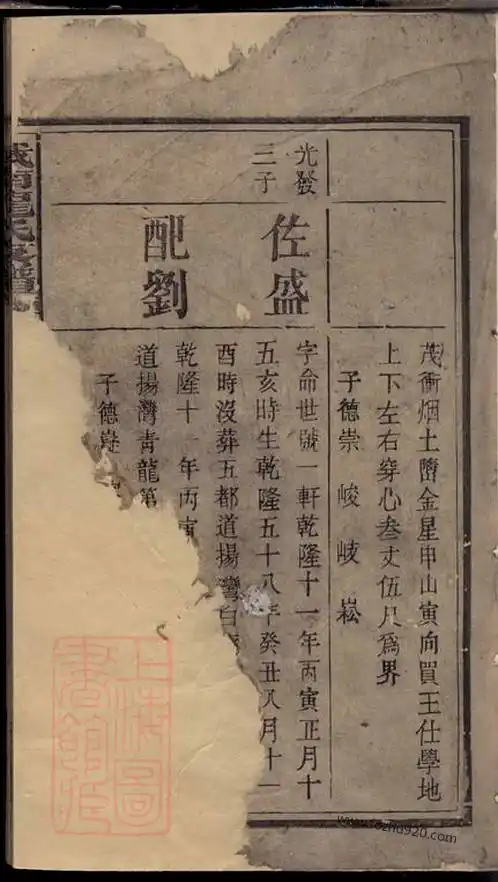 茂衝烟土磨金星申山寅向買王仕學地
上下左右穿心叁丈伍尺為界
子德崇 峻 岐 崧
光發
三子
佐盛
字命世號一軒乾隆十一年丙寅正月十
五亥時生乾隆五十八年癸丑八月十一
酉時沒葬五都道揚灣白
配劉
乾隆十一年丙寅
道揚灣青龍第
子德
上海圖
書館藏
www.tozhu920.com